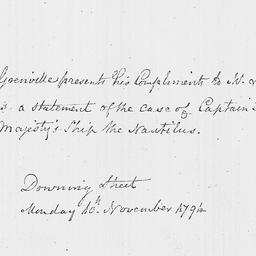 Grenville presents his Compliments to
a statement of the case of Captain
Majesty's Ship the Nautilus.
Downing Street
Monday 10th. November 1794